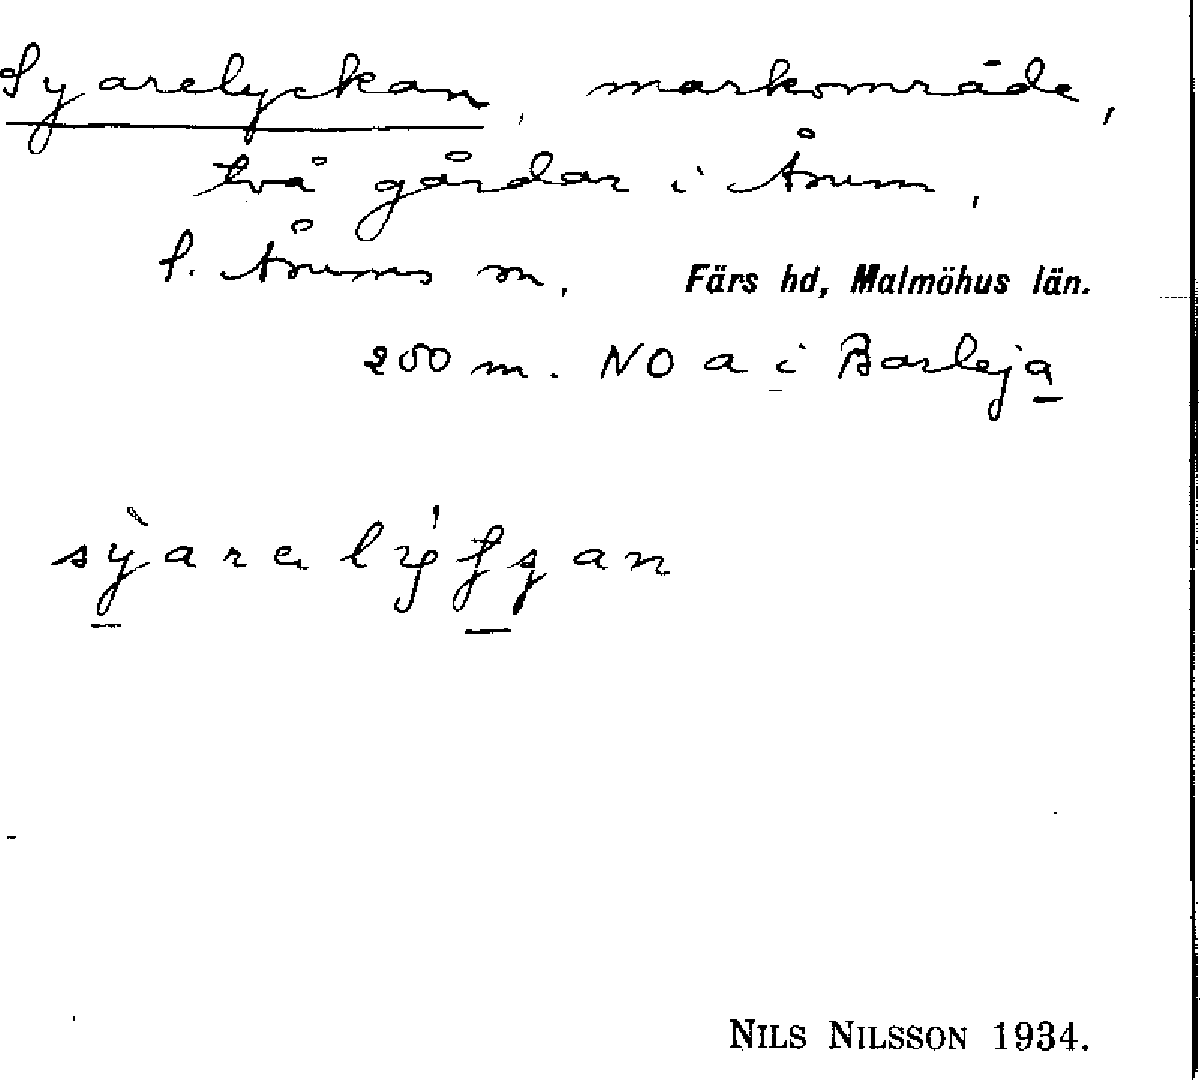 Syarelyckan, markområde,
två gårdar i Årum,
S. Årums m. Färs hd, Malmöhus län.
200 m. NO a i Barleja
NILS NILSSON 1934.